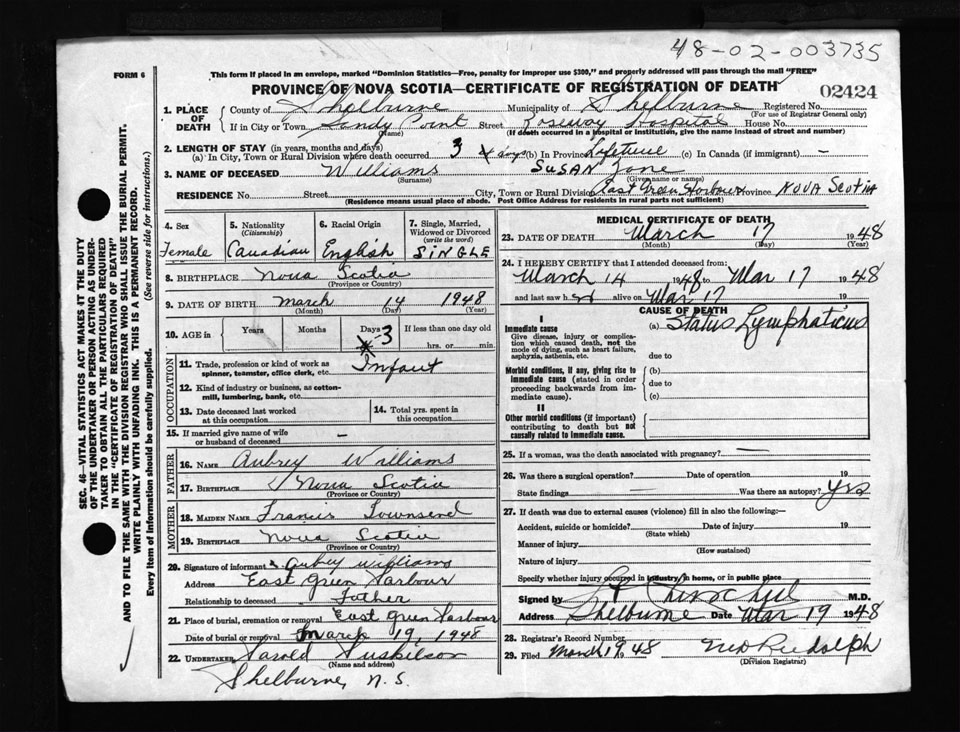 48-02-003735
FORM 6
This form if placed in an envelope, marked "Dominion Statistics—Free, penalty for improper use $300," and properly addressed will pass through the mail "FREE"
PROVINCE OF NOVA SCOTIA—CERTIFICATE OF REGISTRATION OF DEATH
02424
1. PLACE OF DEATH County of Shelburne Municipality of Shelburne Registered No.
(For use of Registrar General only)
If in City or Town Sandy Point Street Roseway Hospital House No.
(If death occurred in a hospital or institution, give the name instead of street and number)
2. LENGTH OF STAY (in years, months and days)
(a) In City, Town or Rural Division where death occurred 3 days (b) In Province Lifetime (c) In Canada (if immigrant) —
3. NAME OF DECEASED Williams SUSAN Jane
(Surname) (Given name or names)
RESIDENCE No. Street City, Town or Rural Division East Green Harbour Province NOVA SCOTIA
(Residence means usual place of abode. Post Office Address for residents in rural parts not sufficient)
4. Sex 5. Nationality (Citizenship) 6. Racial Origin 7. Single, Married, Widowed or Divorced (write the word)
Female Canadian English SINGLE
8. BIRTHPLACE Nova Scotia
(Province or Country)
9. DATE OF BIRTH March 14 1948
(Month) (Day) (Year)
10. AGE in Years Months Days 3 If less than one day old
hrs. or min.
OCCUPATION
11. Trade, profession or kind of work as spinner, teamster, office clerk, etc. Infant
12. Kind of industry or business, as cotton-mill, lumbering, bank, etc.
13. Date deceased last worked at this occupation
14. Total yrs. spent in this occupation
15. If married give name of wife or husband of deceased —
FATHER
16. NAME Aubrey Williams
17. BIRTHPLACE Nova Scotia
(Province or Country)
MOTHER
18. MAIDEN NAME Francis Townsend
19. BIRTHPLACE Nova Scotia
(Province or Country)
20. Signature of informant Aubrey Williams
Address East Green Harbour
Relationship to deceased Father
21. Place of burial, cremation or removal East Green Harbour
Date of burial or removal March 19, 1948
22. UNDERTAKER Harold Huskilson
(Name and address)
Shelburne, N.S.
MEDICAL CERTIFICATE OF DEATH
23. DATE OF DEATH March 17 1948
(Month) (Day) (Year)
24. I HEREBY CERTIFY that I attended deceased from:
March 14 1948 to Mar 17 1948
and last saw h alive on Mar 17 19
CAUSE OF DEATH
I
Immediate cause (a) Status Lymphaticus
Give disease, injury or complication which caused death, not the mode of dying, such as heart failure, asphyxia, asthenia, etc. due to
Morbid conditions, if any, giving rise to immediate cause (stated in order proceeding backwards from immediate cause). (b)
due to
(c)
II
Other morbid conditions (if important) contributing to death but not causally related to immediate cause.
25. If a woman, was the death associated with pregnancy? —
26. Was there a surgical operation? Date of operation 19
State findings — Was there an autopsy? Yes
27. If death was due to external causes (violence) fill in also the following:—
Accident, suicide or homicide? Date of injury 19
(State which)
Manner of injury
(How sustained)
Nature of injury
Specify whether injury occurred in industry, in home, or in public place
Signed by M.D.
Address Shelburne Date Mar 19 1948
28. Registrar's Record Number
29. Filed March 19 1948
Rudolph
(Division Registrar)
SEC. 46—VITAL STATISTICS ACT MAKES IT THE DUTY
OF THE UNDERTAKER OR PERSON ACTING AS UNDER-
TAKER TO OBTAIN ALL THE PARTICULARS REQUIRED
IN THE "CERTIFICATE OF REGISTRATION OF DEATH"
AND TO FILE THE SAME WITH THE DIVISION REGISTRAR WHO SHALL ISSUE THE BURIAL PERMIT.
WRITE PLAINLY WITH UNFADING INK. THIS IS A PERMANENT RECORD.
Every item of Information should be carefully supplied. (See reverse side for instructions.)